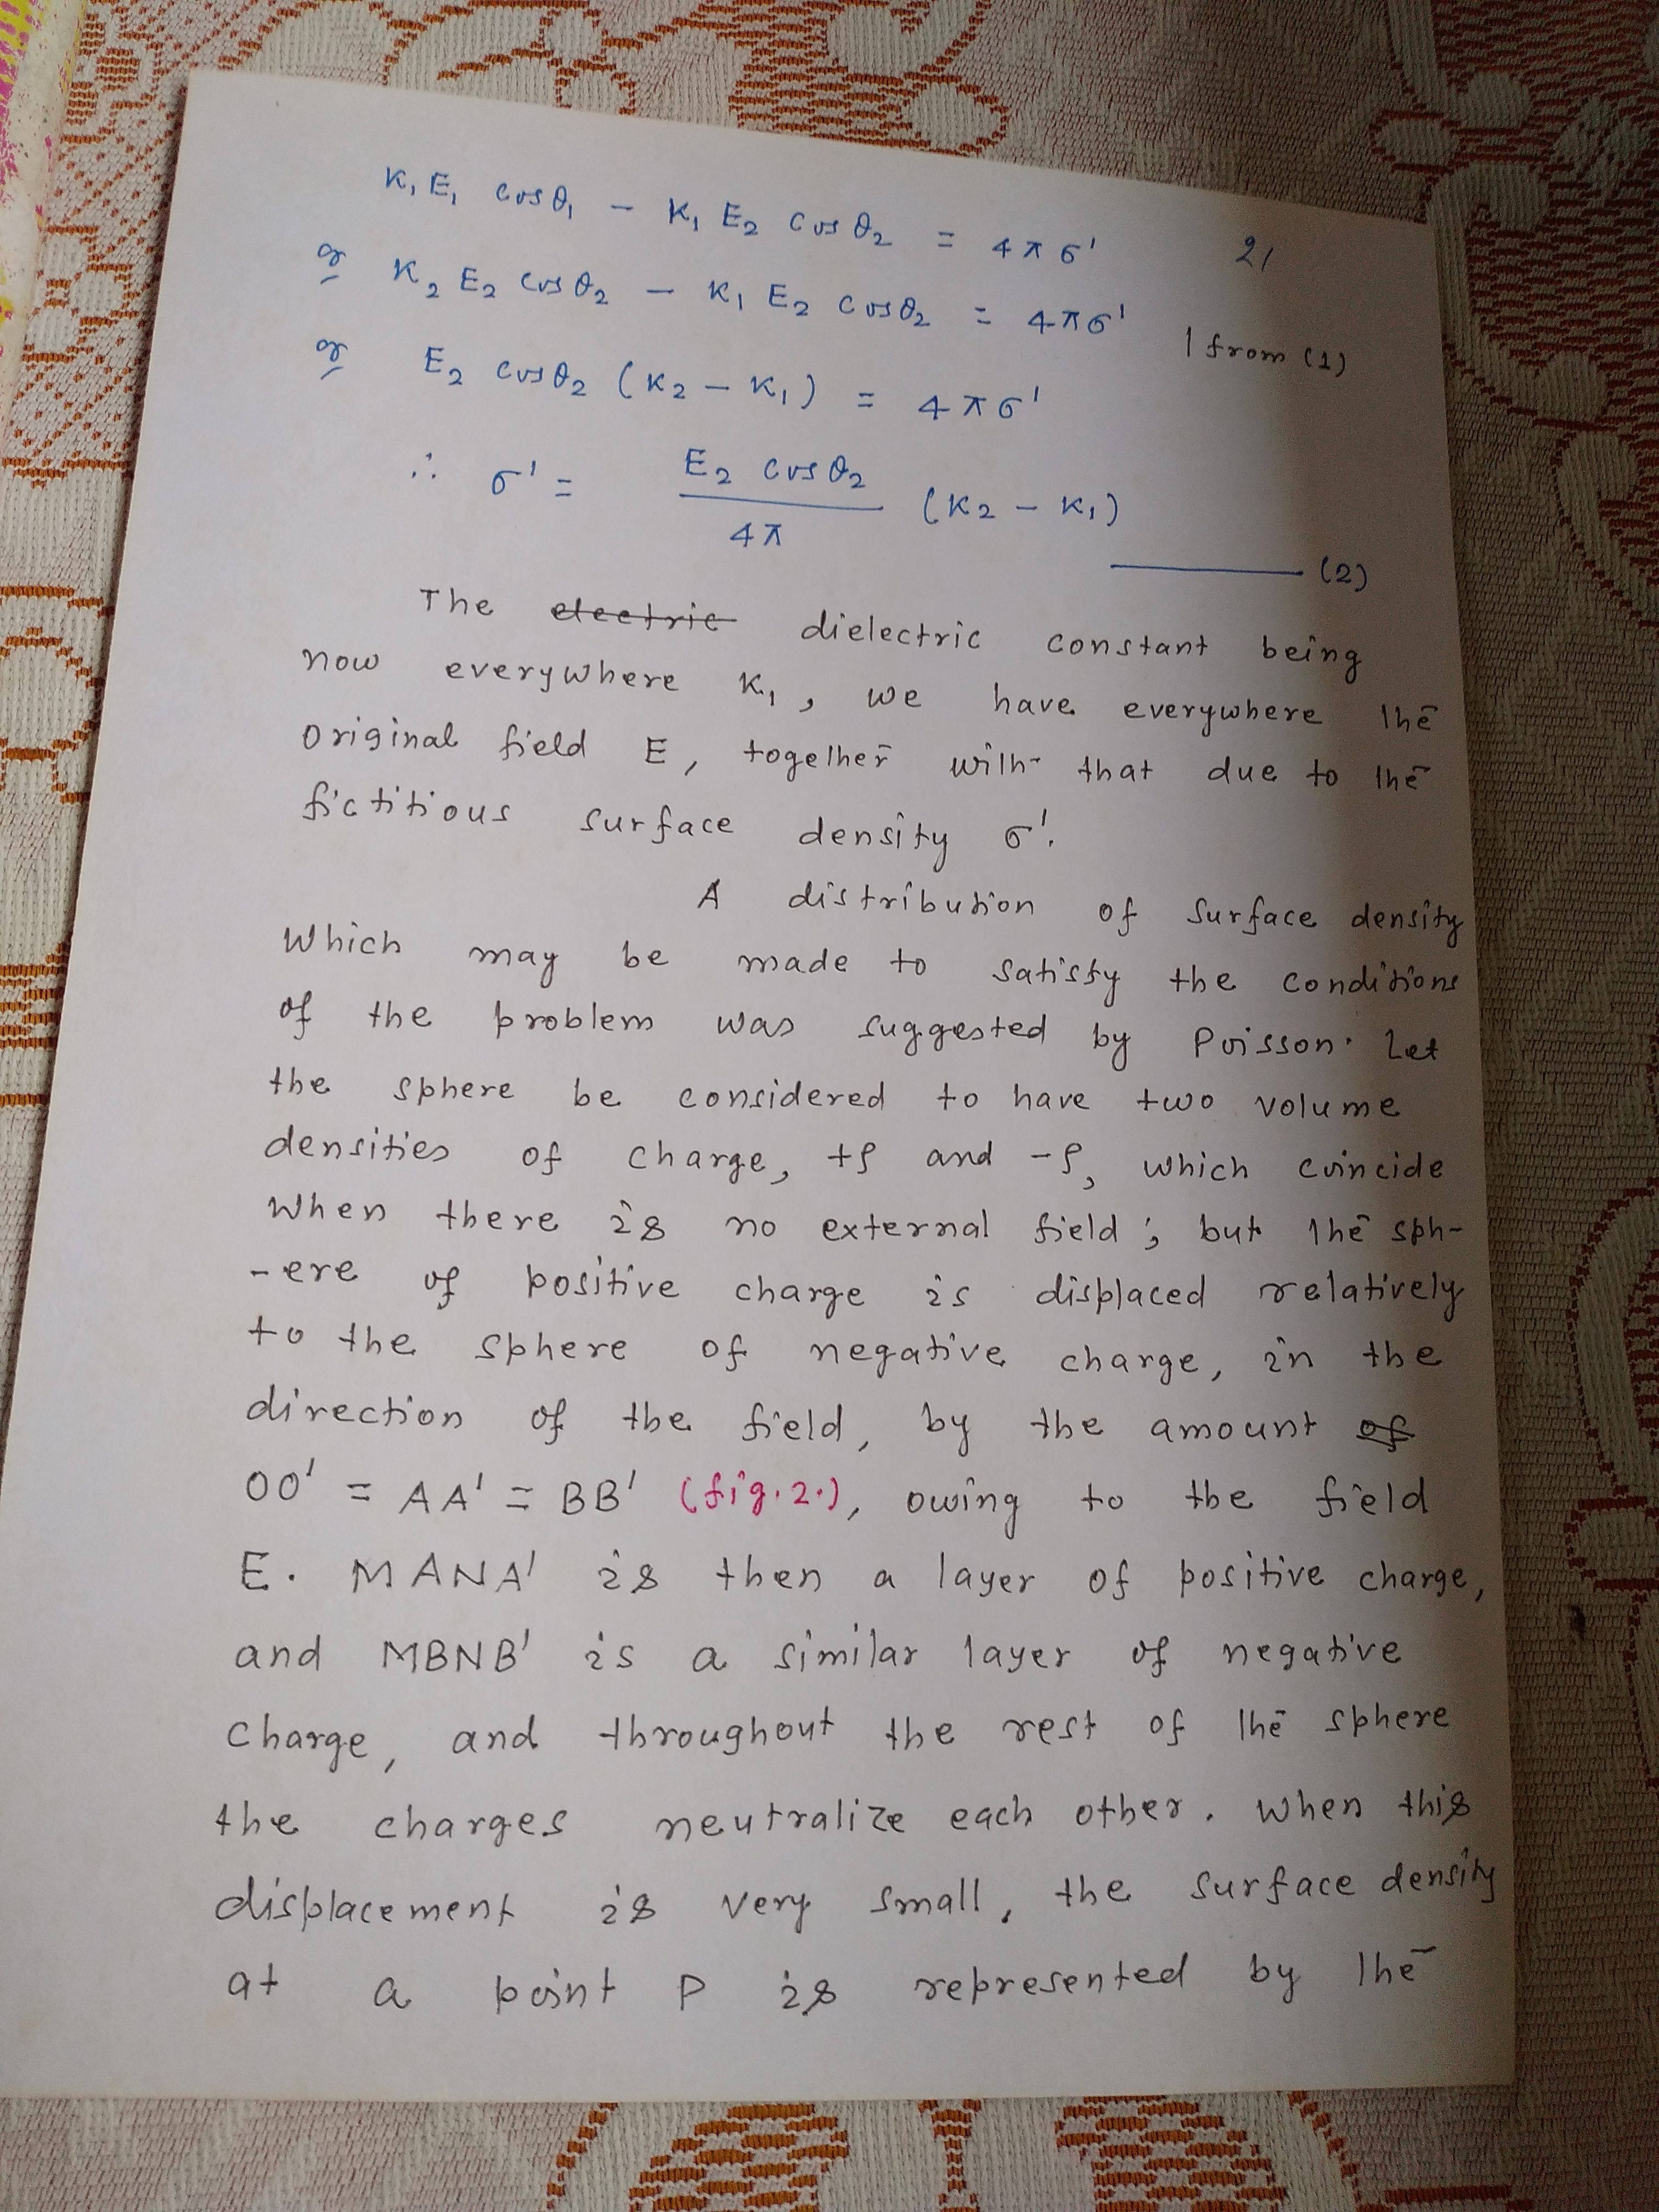 K₁E₁ cosθ₁ − K₁E₂ cosθ₂ = 4πσ'
21
or K₂E₂ cosθ₂ − K₁E₂ cosθ₂ = 4πσ' | from (1)
or E₂ cosθ₂ (K₂ − K₁) = 4πσ'
∴ σ' = E₂ cosθ₂ / 4π (K₂ − K₁)
(2)
The electric dielectric constant being
now everywhere K₁, we have everywhere the
original field E, together with that due to the
fictitious surface density σ'.
A distribution of surface density
which may be made to satisfy the conditions
of the problem was suggested by Poisson. Let
the sphere be considered to have two volume
densities of charge, +ρ and −ρ, which coincide
when there is no external field; but the sph-
-ere of positive charge is displaced relatively
to the sphere of negative charge, in the
direction of the field, by the amount of
OO' = AA' = BB' (fig.2.), owing to the field
E. MANA' is then a layer of positive charge,
and MBNB' is a similar layer of negative
charge, and throughout the rest of the sphere
the charges neutralize each other. When this
displacement is very small, the surface density
at a point P is represented by the